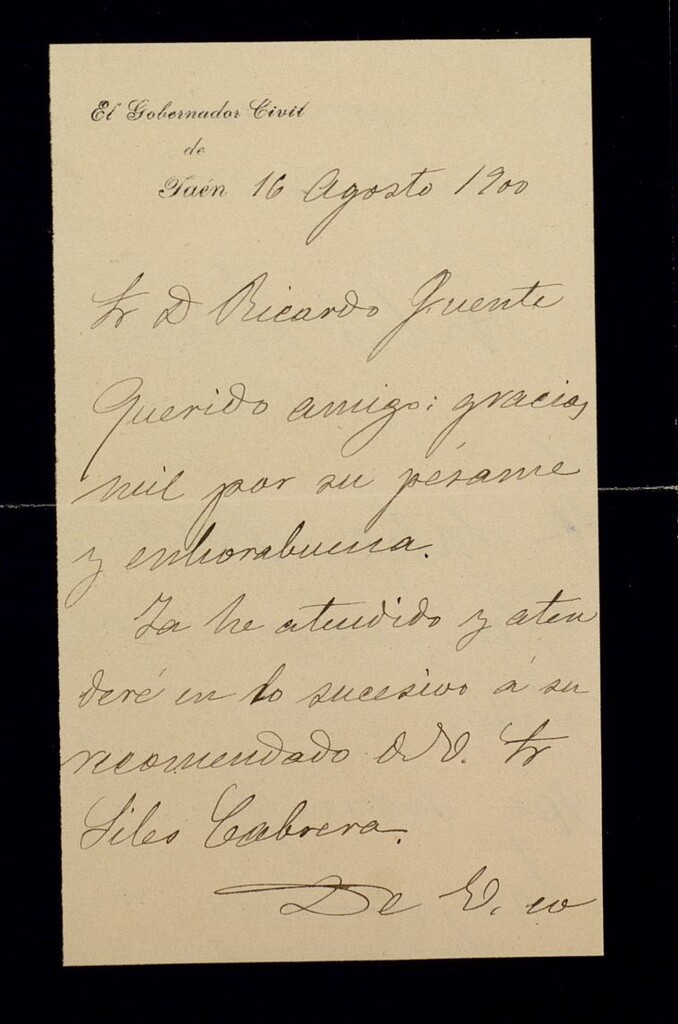 El Gobernador Civil
de
Jaén 16 Agosto 1900
Sr D Ricardo Fuente
Querido amigo: gracias
mil por su pésame
y enhorabuena.
Ya he atendido y aten
deré en lo sucesivo á su
recomendado el Sr
Siles Cabrera.
De V. co